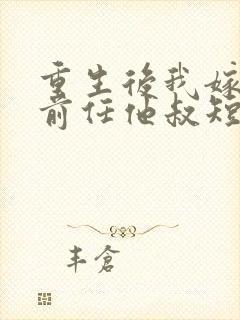 重生後我嫁
前任他叔短
丰倉